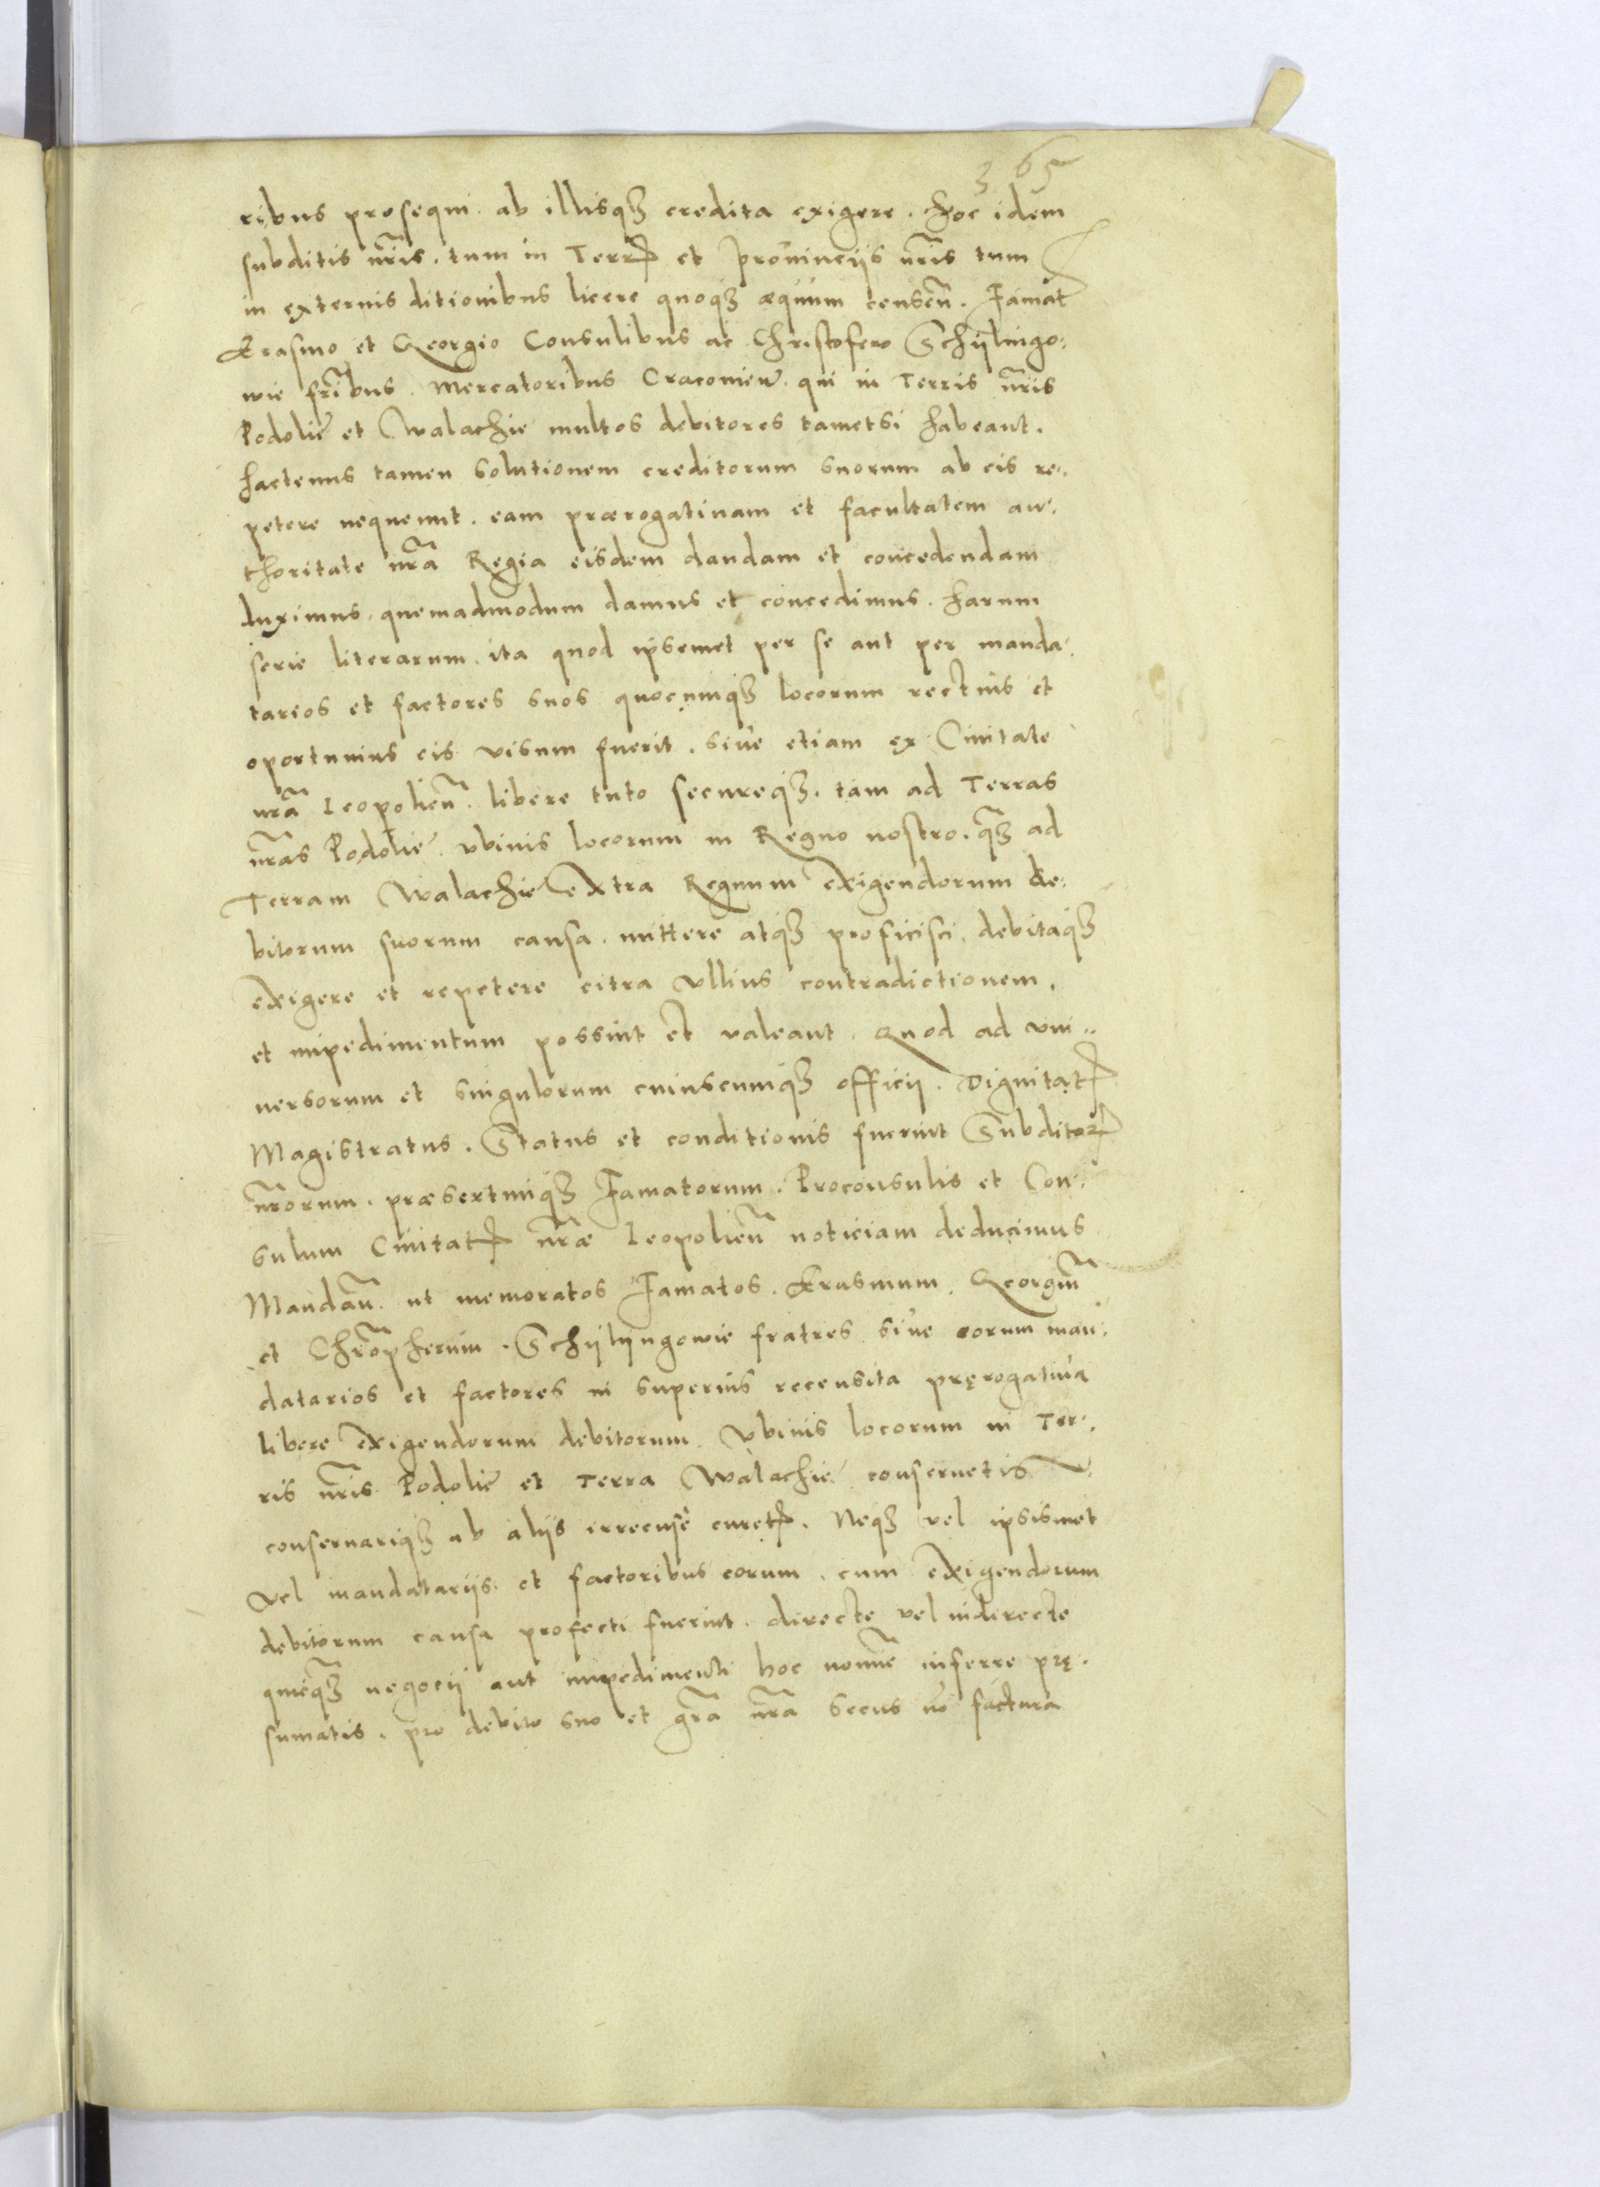 365
ribus prosequi. ab illisqȝ credita exigere. Hoc idem
subditis nr̃is. tum in Terrꝭ et prouinciis nr̃is tum
in externis ditionibus licere quoqȝ æquum censeñ. Famatꝭ
Erasmo et Georgio Consulibus ac Christofero Schÿlingo:
wie fr̃ibus. Mercatoribus Cracouieñ. qui in Terris nr̃is
Podolie et Walachie multos debitores tametsi habeant.
hactenus tamen solutionem creditorum suorum ab eis re:
petere nequeunt. eam prærogatiuam et facultatem au:
thoritate nr̃a Regia eisdem dandam et concedendam
duximus. quemadmodum damus et concedimus. harum
serie literarum. ita quod ipsemet per se aut per manda:
tarios et factores suos quocunqȝ locorum rectius et
oportunius eis visum fuerit. siue etiam ex Ciuitate
nr̃a Leopolieñ. libere tuto secureqȝ. tam ad Terras
nr̃as Podolie. vbiuis locorum in Regno nostro. qȝ ad
Terram Walachie extra Regnum exigendorum de:
bitorum suorum causa. mittere atqȝ proficisci. debitaqȝ
exigere et repetere citra vllius contradictionem.
et impedimentum possint et valeant. Quod ad vni:
uersorum et singulorum cuiuscunqȝ officij. Dignitatꝭ
Magistratus. Status et conditionis fuerint Subditoꝝ
nr̃orum. præsertimqȝ Famatorum. Proconsulis et Con:
sulum Ciuitatꝭ nr̃æ Leopolieñ noticiam deducimus
Mandañ. ut memoratos Famatos. Erasmum. Georgiũ
et Chr̃opherum. Schÿlÿngowie fratres siue eorum man:
datarios et factores in superius recensita pręrogatiua
libere exigendorum debitorum. Vbiuis locorum in Ter:
ris nr̃is Podolie et Terra Walachie conseruetis
conseruariqȝ ab aliis irrecuse curetꝭ. Neqȝ vel ipsismet
Vel mandatariis. et factoribus eorum. cum exigendorum
debitorum causa profecti fuerint. directe vel indirecte
quicqȝ negocij aut impedimenti hoc nomine inferre prę:
sumatis. pro debito suo et gr̃a nr̃a secus no͂ factura